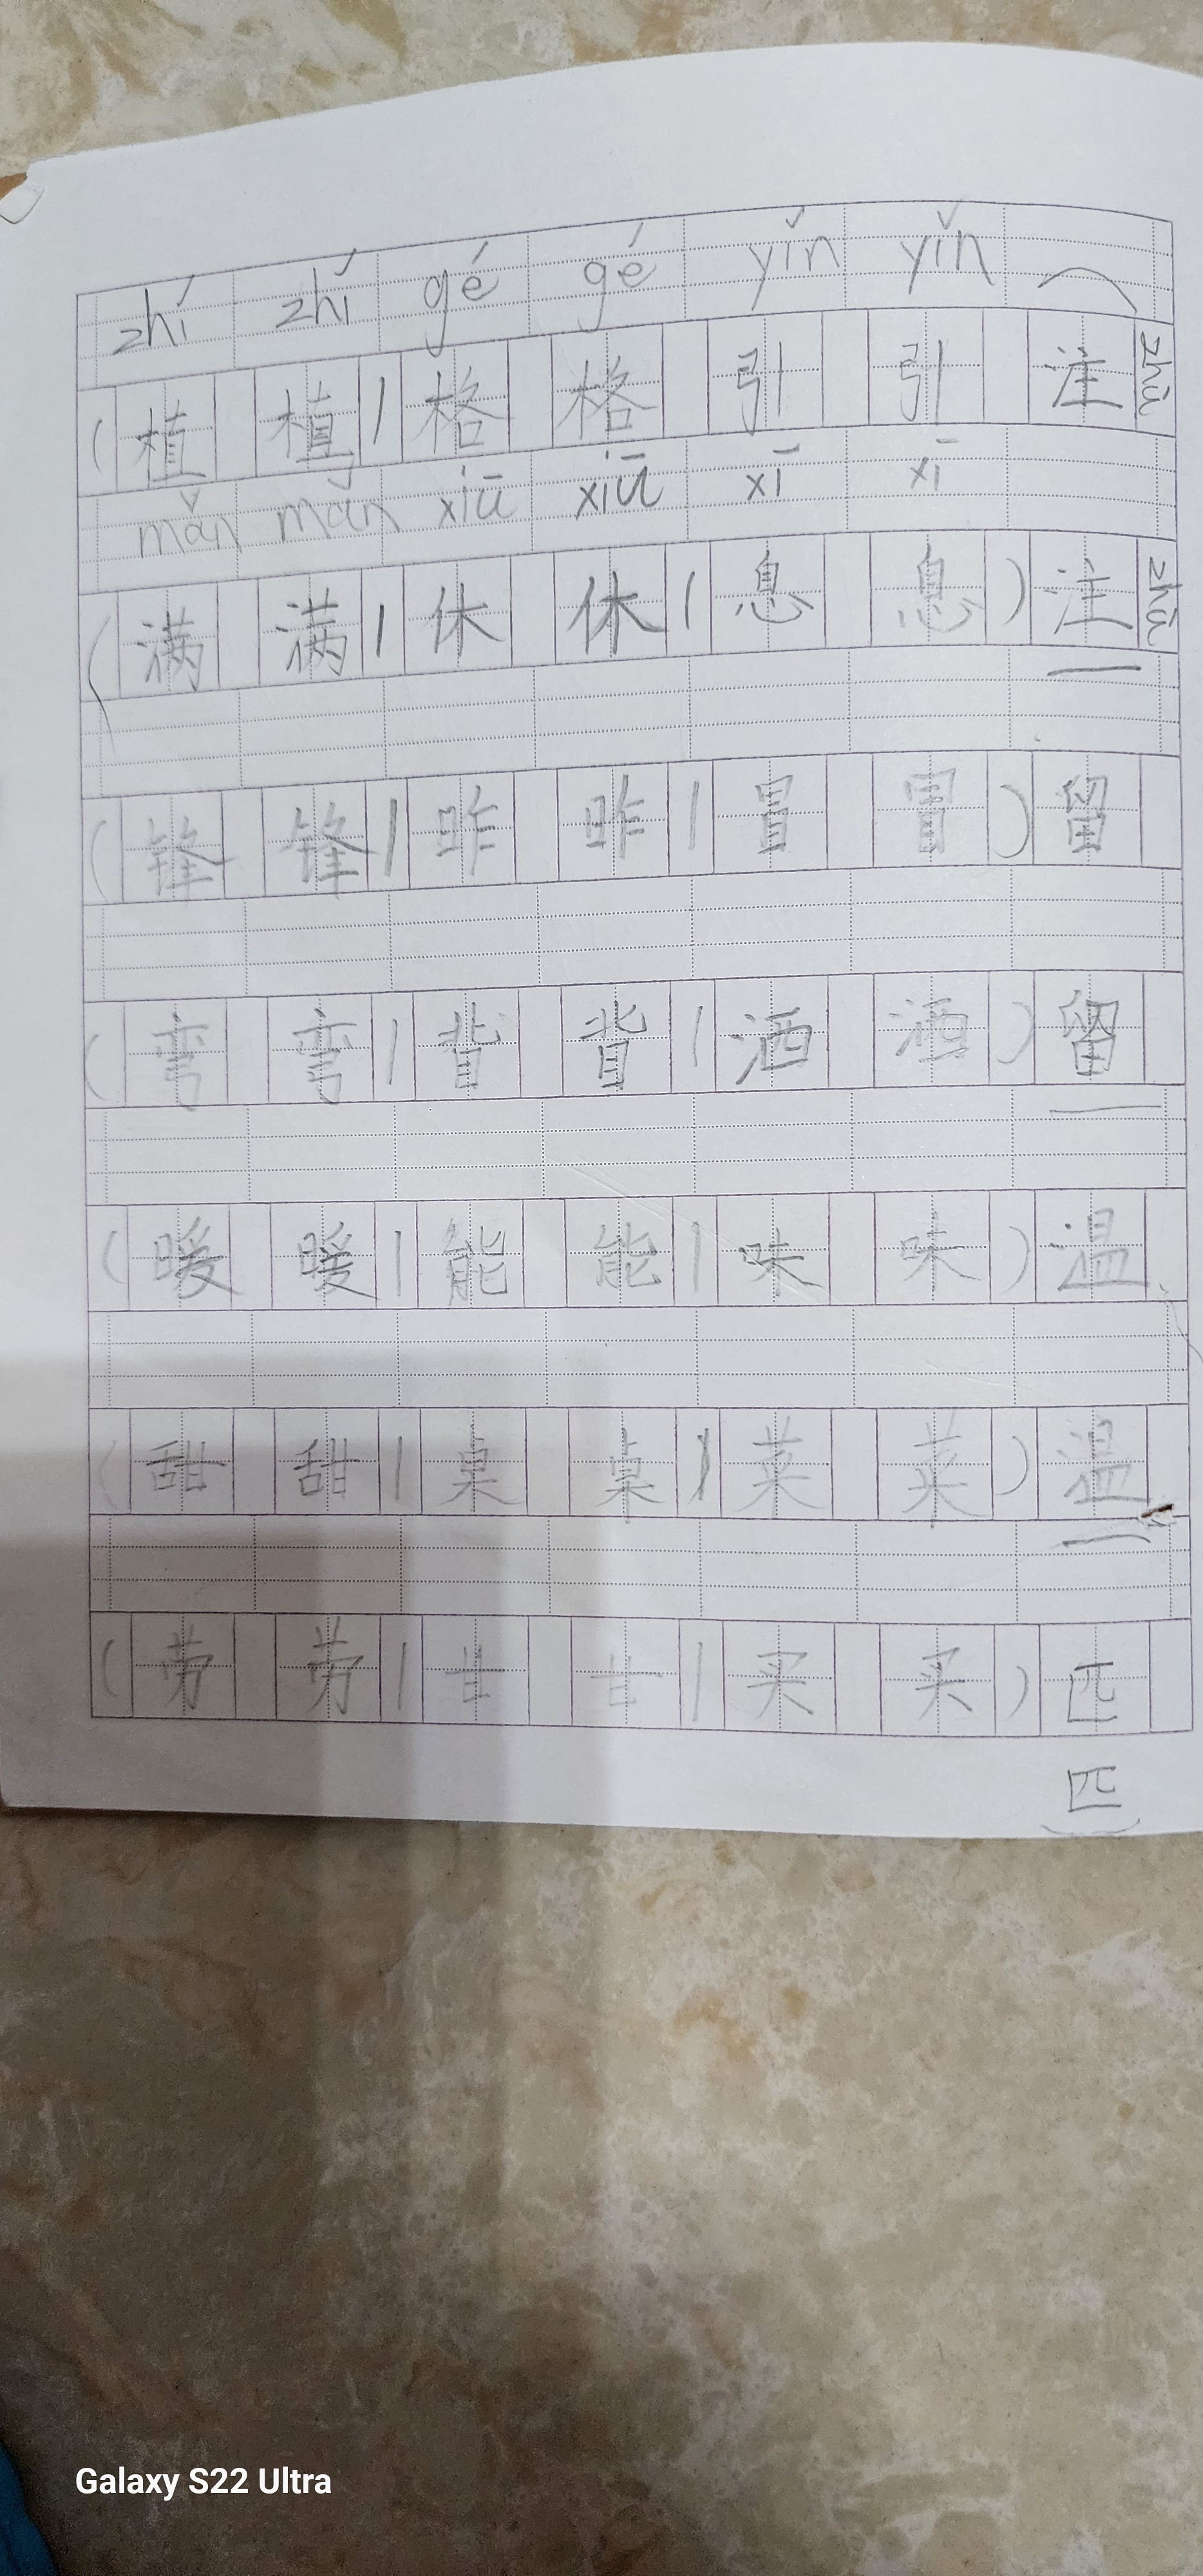 zhí zhí gé gé yǐn yǐn
( 植 植 / 格 格 引 引 注 zhù
mǎn mǎn xiū xiū xī xī
( 满 满 / 休 休 / 息 息 ) 注 zhù
( 锋 锋 / 昨 昨 / 冒 冒 ) 留
( 弯 弯 / 背 背 / 洒 洒 ) 留
( 暖 暖 / 能 能 / 味 味 ) 温
( 甜 甜 / 桌 桌 / 菜 菜 ) 温
( 劳 劳 / 甘 甘 / 买 买 ) 匹
匹
Galaxy S22 Ultra